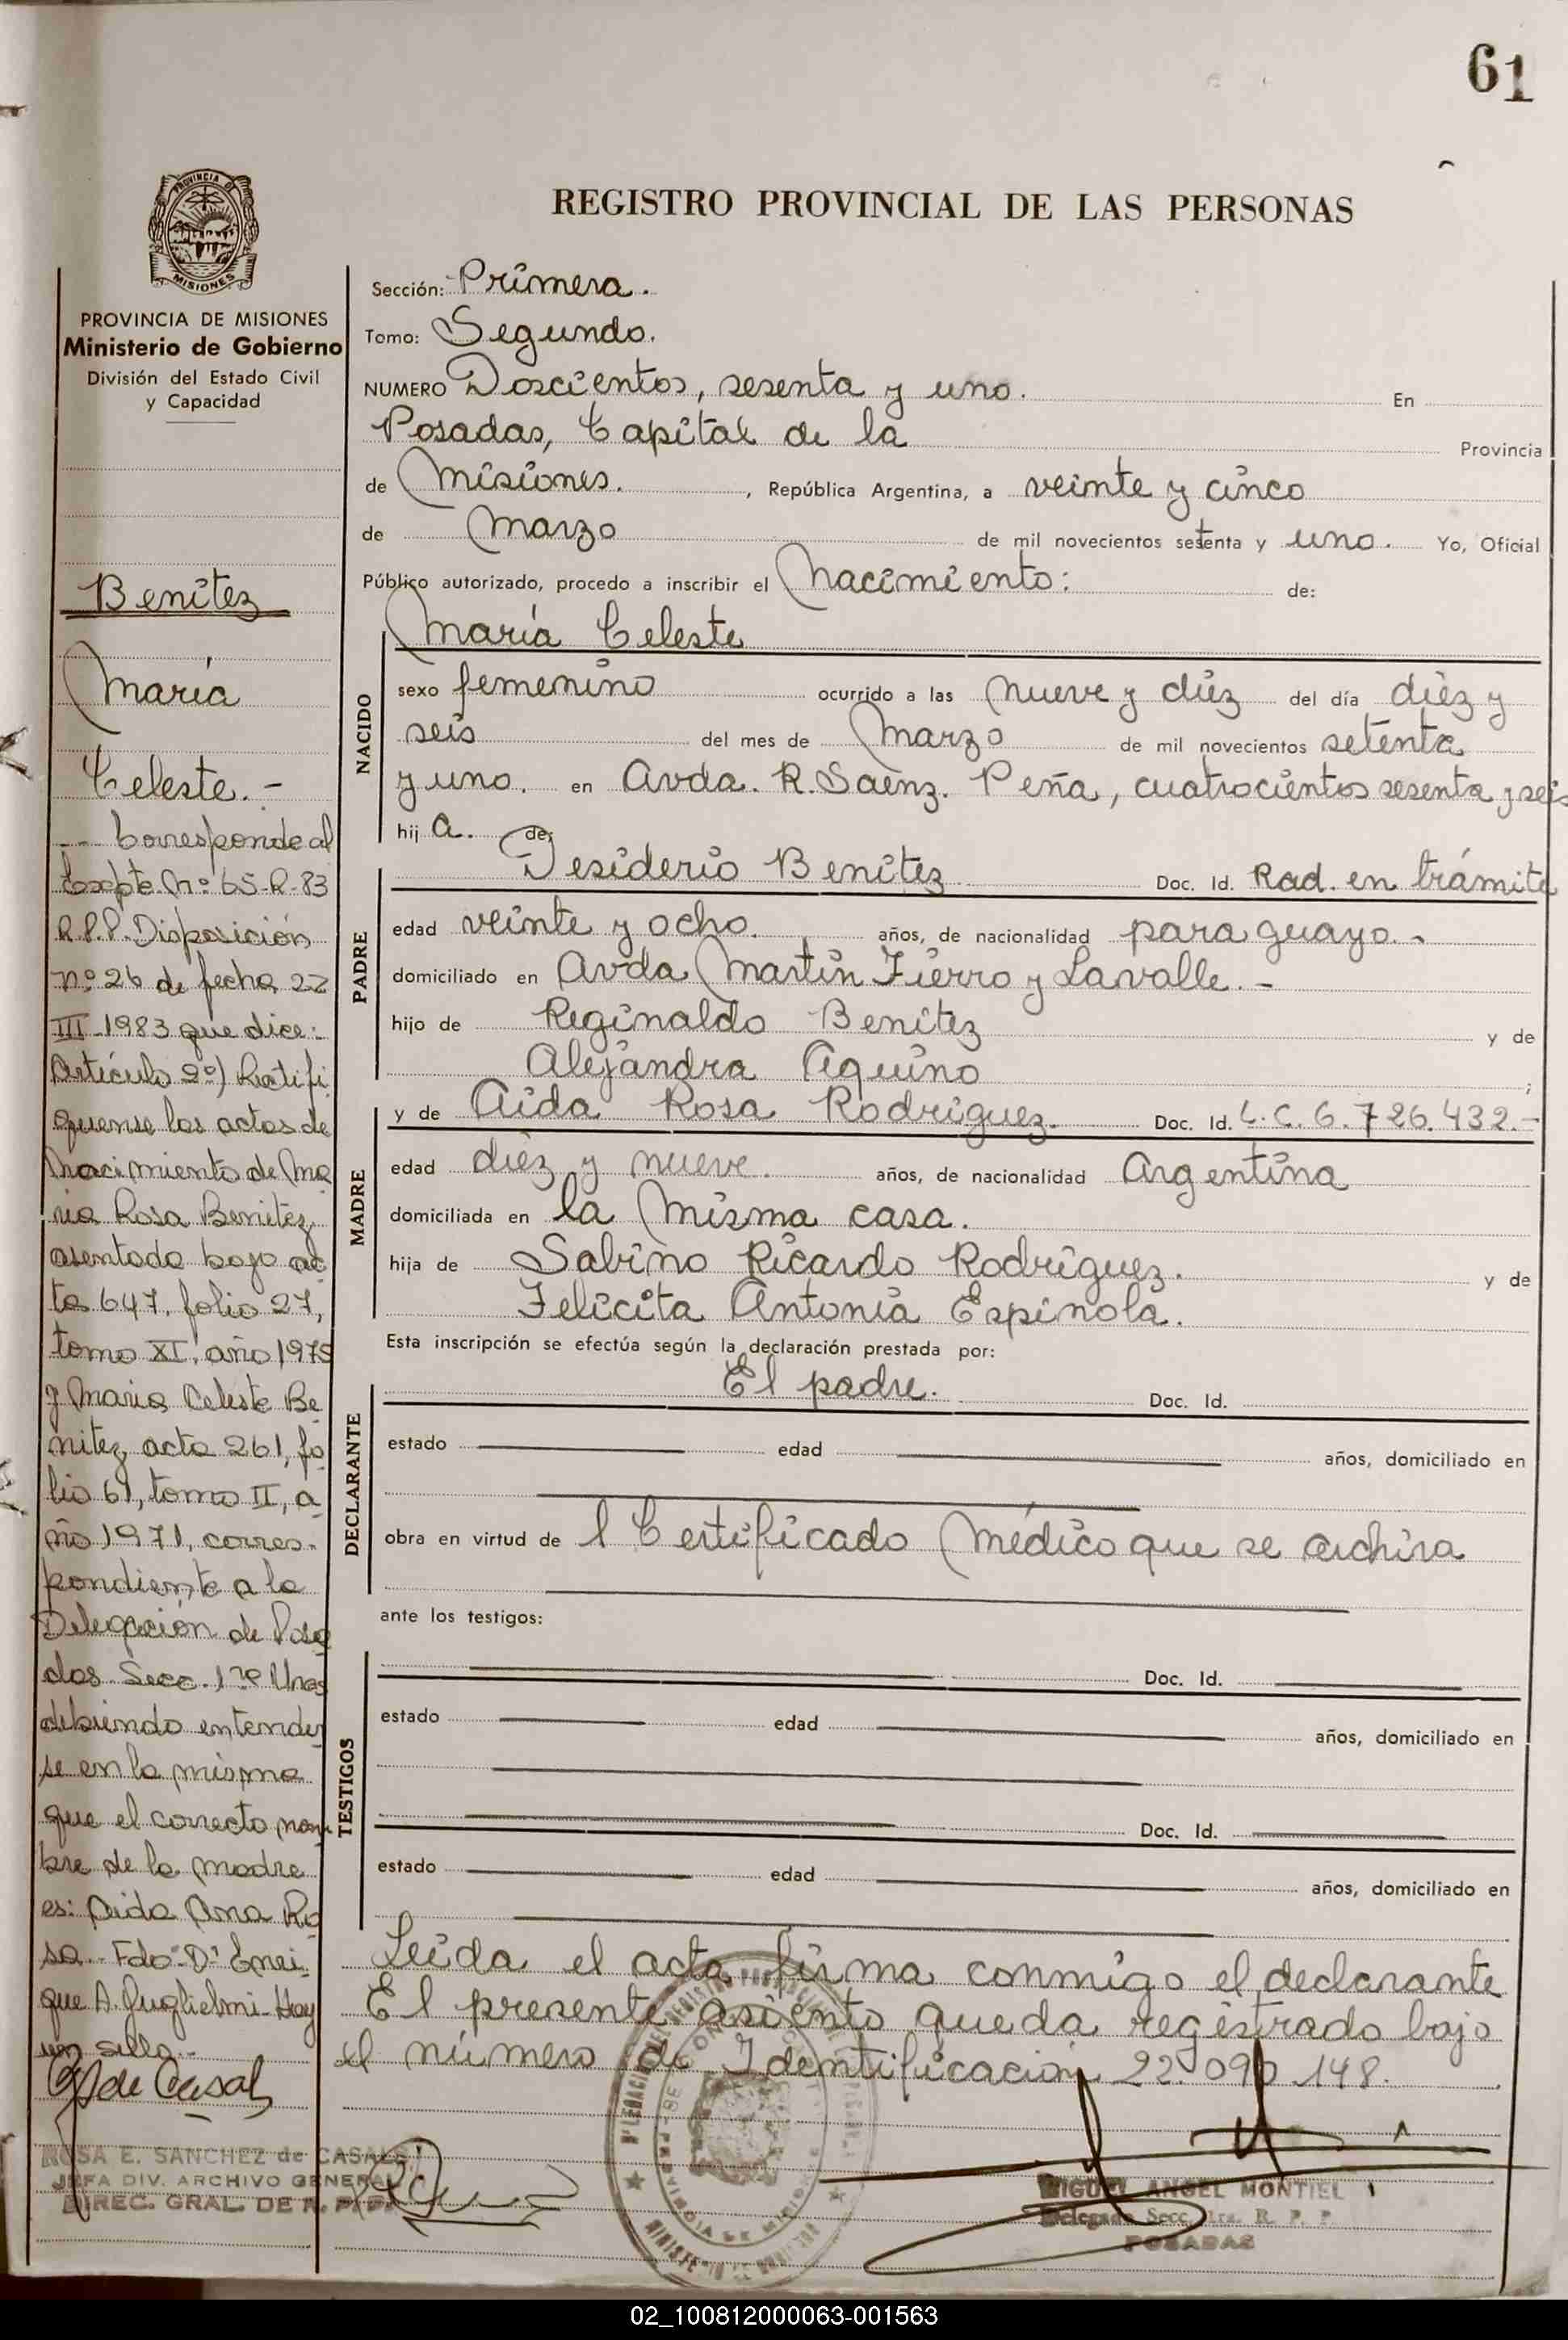 61
REGISTRO PROVINCIAL DE LAS PERSONAS
PROVINCIA DE
MISIONES
PROVINCIA DE MISIONES
Ministerio de Gobierno
División del Estado Civil
y Capacidad
Benítez
María
Celeste. -
-- Corresponde al
Expte. Nº 65-R-83
R.P.P. Disposición
nº 26 de fecha 22
III-1983 que dice:
Artículo 2º) Ratifi
quense las actas de
Nacimiento de Ma
ria Rosa Benitez
asentada bajo ac
ta 647, folio 27,
tomo XI, año 1975
y Maria Celeste Be
nitez, acta 261, fo
lio 61, tomo II, a
ño 1971, corres-
pondiente a la
Delegación de Posa
das Secc. 1ra
debiendo entender
se en la misma
que el correcto nom
bre de la madre
es: Aida Ana Ro
sa. Fdo. Dr Enri
que A. Guglielmi-Hay
un sello.-
de Casals
ROSA E. SANCHEZ de CASALS
JEFA DIV. ARCHIVO GENERAL
DIREC. GRAL. DE R. P. P.
Sección: Primera.
Tomo: Segundo.
NUMERO Doscientos, sesenta y uno. En
Posadas, Capital de la Provincia
de Misiones. , República Argentina, a veinte y cinco
de Marzo de mil novecientos setenta y uno. Yo, Oficial
Público autorizado, procedo a inscribir el Nacimiento: de:
María Celeste
NACIDO
sexo femenino ocurrido a las nueve y diez del día diez y
seis del mes de Marzo de mil novecientos setenta
y uno. en Avda. R. Saenz. Peña, cuatrocientos sesenta y seis
hij a. de:
PADRE
Desiderio Benítez Doc. Id. Rad. en trámite
edad veinte y ocho. años, de nacionalidad paraguayo. -
domiciliado en Avda Martín Fierro y Lavalle. -
hijo de Reginaldo Benítez y de
Alejandra Aquino ;
MADRE
y de Aida Rosa Rodríguez. Doc. Id. L.C. 6.726.432.-
edad diez y nueve. años, de nacionalidad Argentina
domiciliada en la misma casa.
hija de Sabino Ricardo Rodríguez. y de
Felicita Antonia Espínola.
Esta inscripción se efectúa según la declaración prestada por:
DECLARANTE
El padre. Doc. Id.
estado edad años, domiciliado en
obra en virtud de l Certificado Médico que se archiva
ante los testigos:
TESTIGOS
Doc. Id.
estado edad años, domiciliado en
Doc. Id.
estado edad años, domiciliado en
Leída el acta firma conmigo el declarante
El presente asiento queda registrado bajo
el número de Identificación 22.090.148.
MIGUEL ANGEL MONTIEL
Delegado Secc. 1ra. R. P. P.
POSADAS
02_100812000063-001563